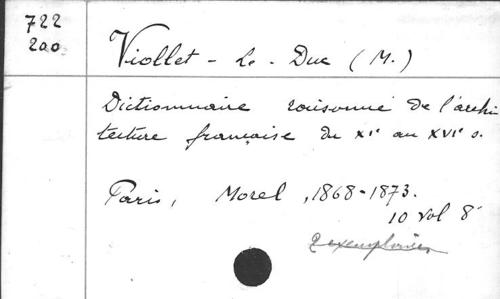 722
200
Viollet-Le-Duc (M.)
Dictionnaire raisonné de l'archi
tecture française du XIe au XVIe s.
Paris, Morel, 1868-1873.
10 vol 8°
2 exemplaires